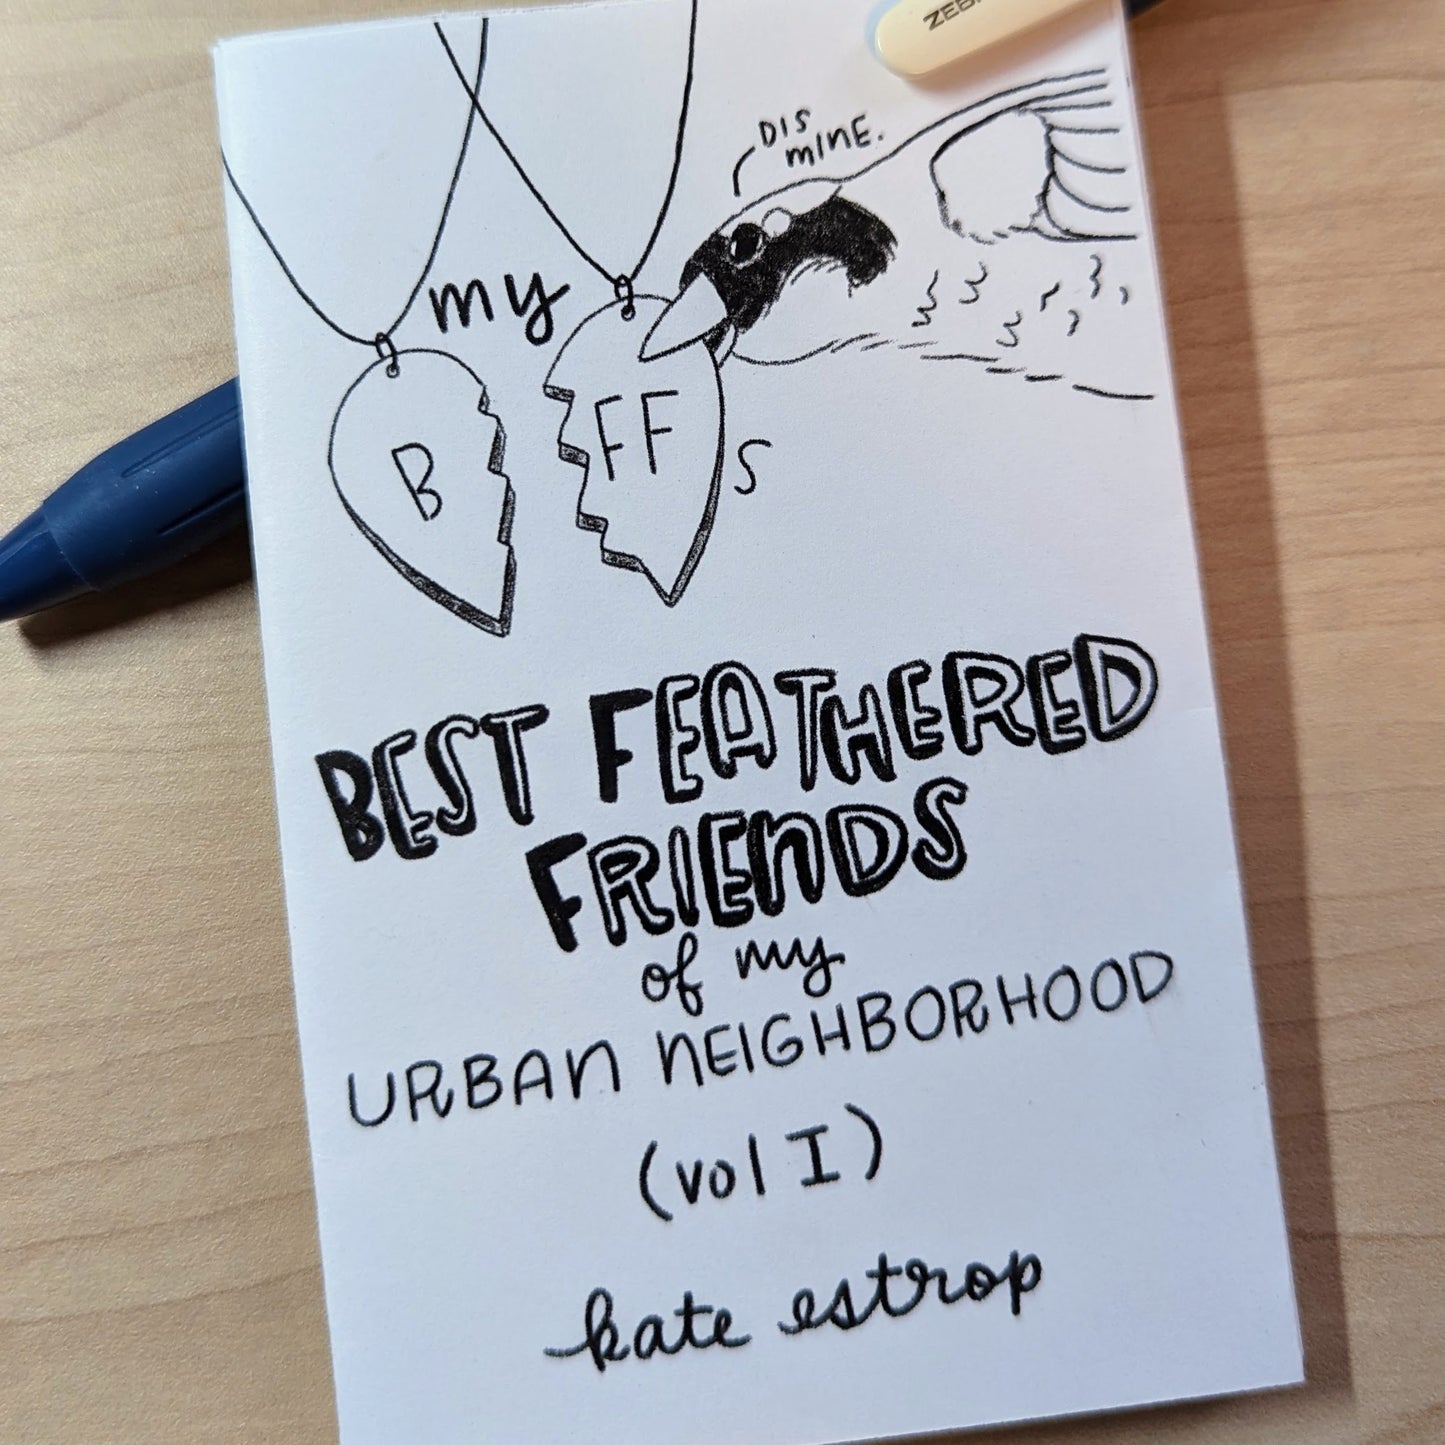 ZEB
DIS
MINE.
my
B FF S
BEST FEATHERED
FRIENDS
of my
URBAN NEIGHBORHOOD
(vol I)
kate estrop